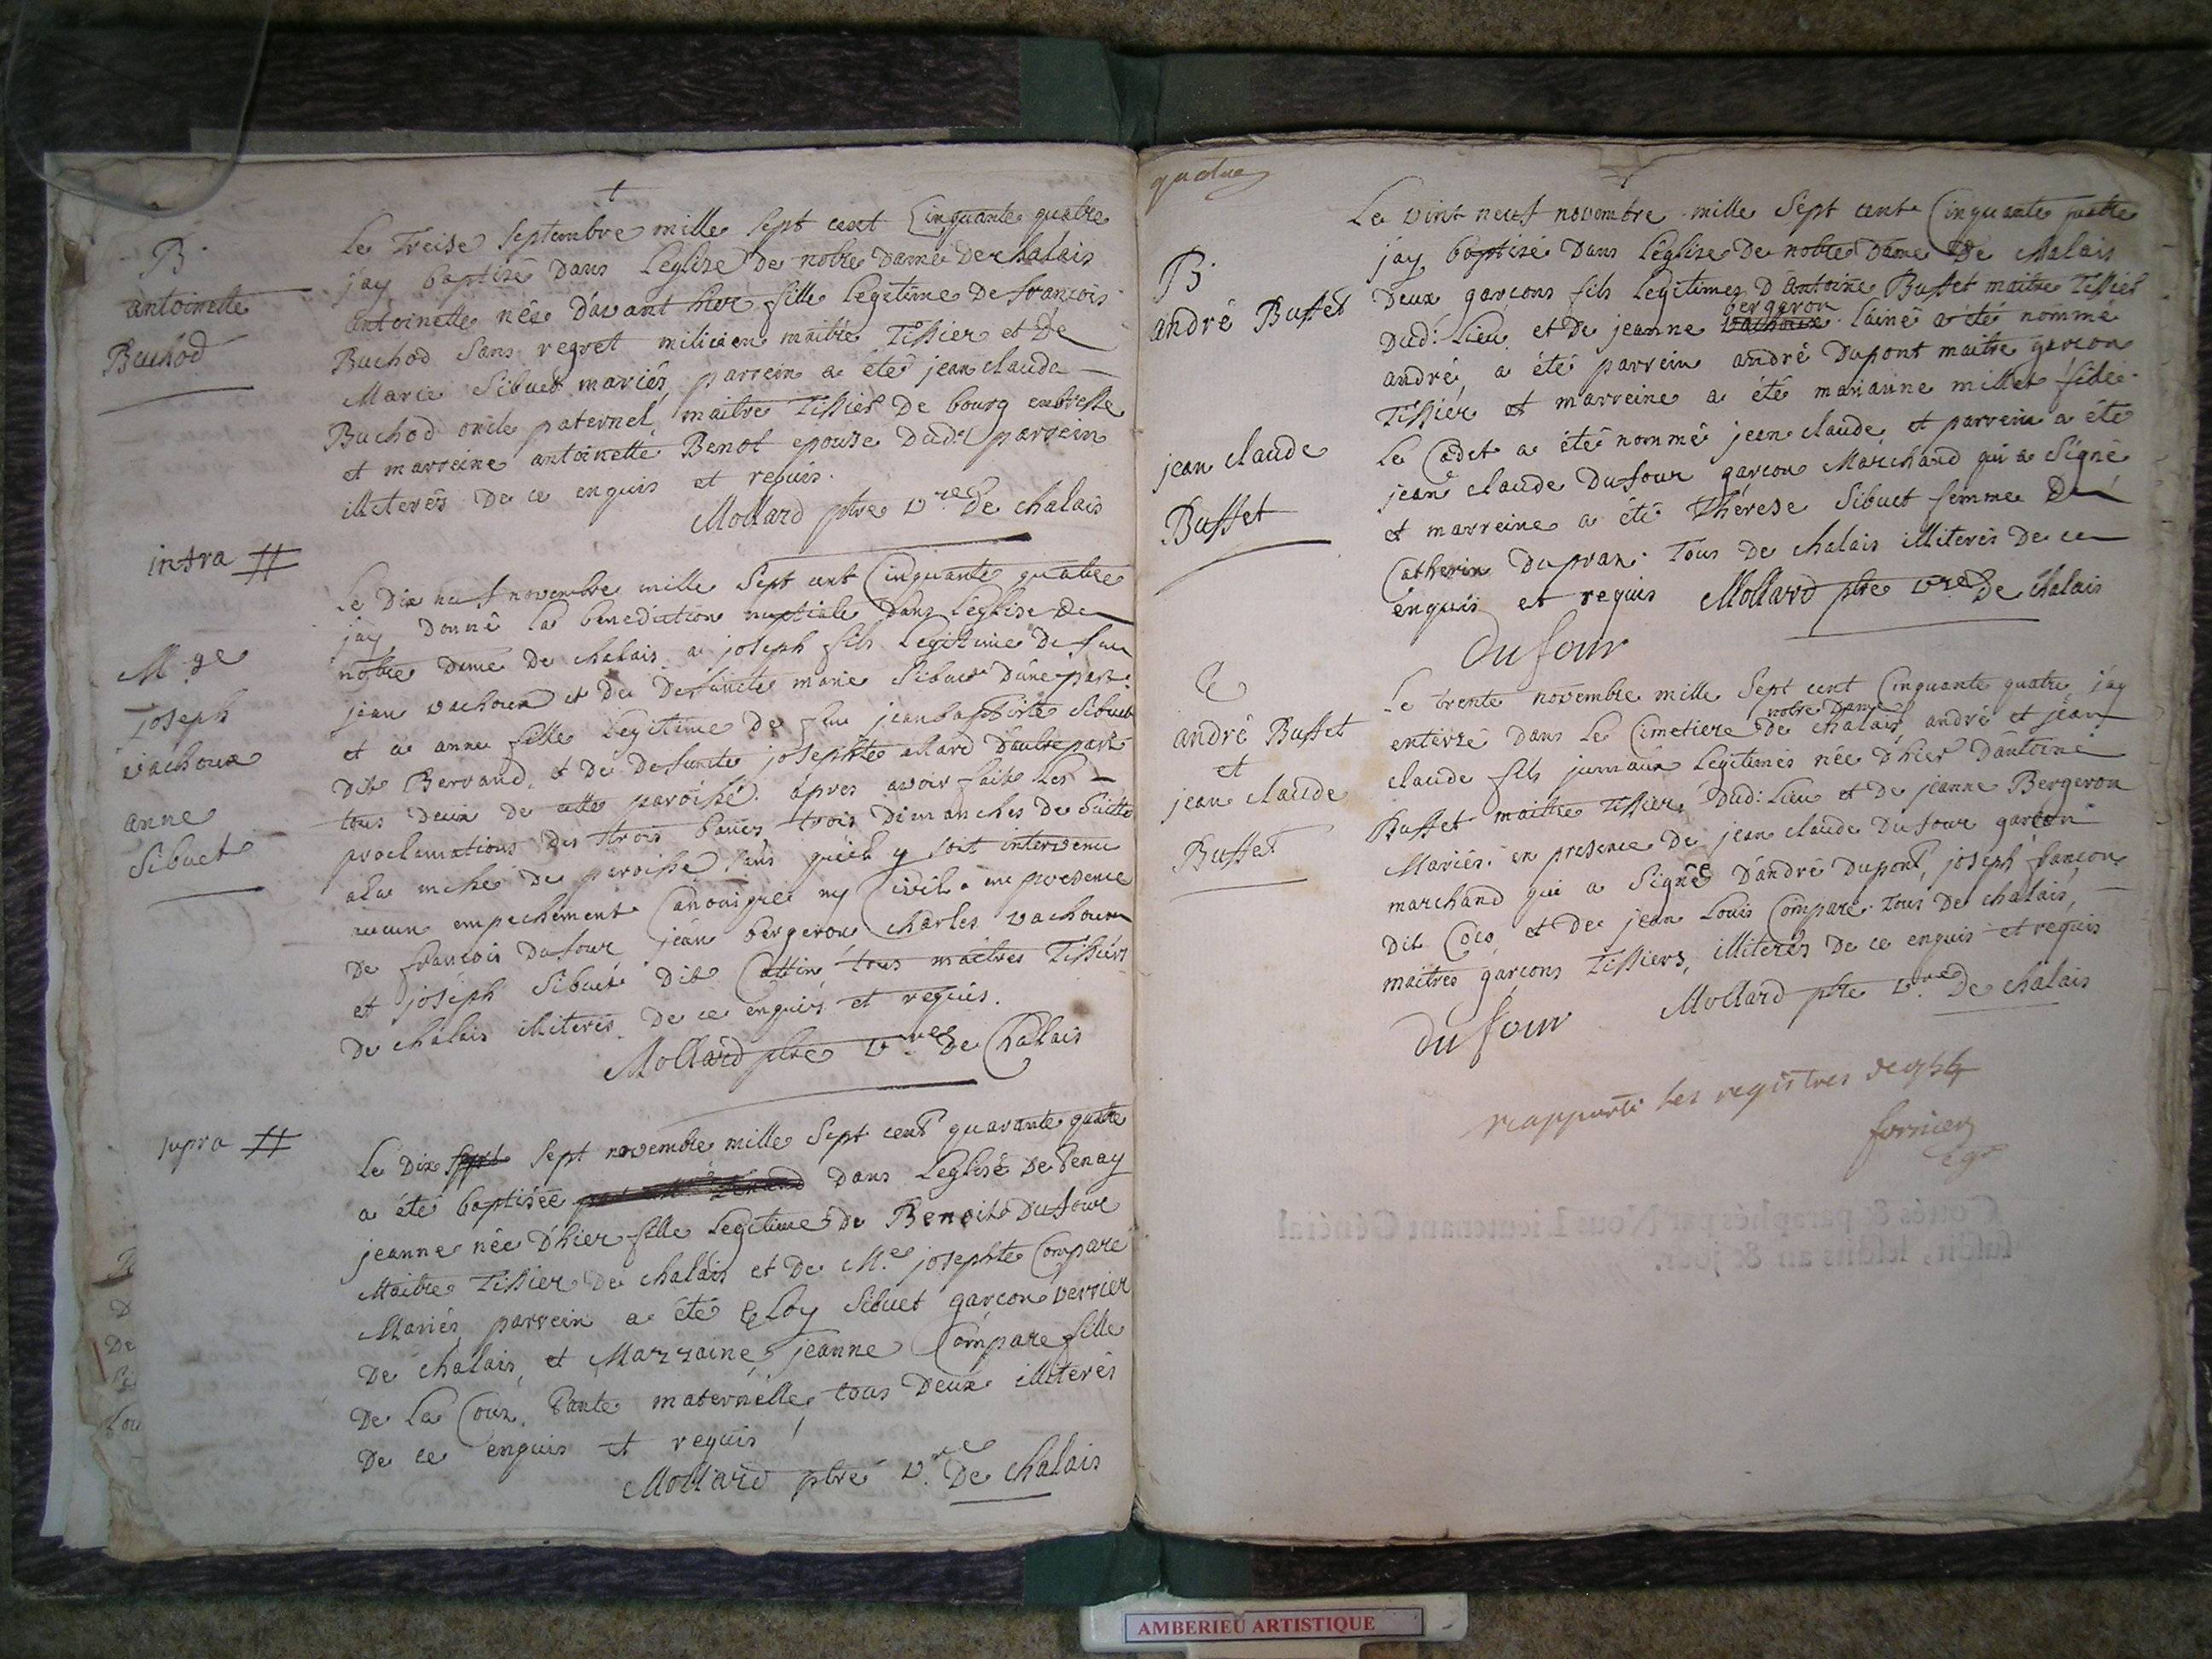 +
B.
antoinette
Buchod
Le Treise Septembre mille Sept cent Cinquante quatre
jay baptisé dans Leglise de notre dame de chalais
antoinette née d'avant hier fille Legitime de françois
Buchod Sans regret milicien maitre Tissier et De
Marie Sibuet mariés, parrein a été jean claude
Buchod oncle paternel, maitre Tissier De bourg enbresse
et marreine antoinette Benot epouse dud.t parrein
illiterés De ce enquis et requis.
Mollard ptre v.re De chalais
infra #
M.ge
joseph
vachoux
anne
Sibuet
Le Dix neuf novembre mille Sept cent Cinquante quatre
jay Donné la benediction nuptiale dans Leglise de
notre dame De chalais a joseph fils Legitime de feu
jean vachoux et de Defuncte marie Sibuet d'une part
et a anne fille Legitime de feu jean baptiste Sibuet
dit Bervand, et De Defuncte josephte allard d'autre part
tous deux de cette paroisse. apres avoir fait Les
proclamations des trois bancs trois dimanches de Suitte
a la messe de paroisse, sans quiel y soit intervenu
aucun empechement Canonique ny Civil. en presence
De francois Dufour jean bergeron charles vachoux
et joseph Sibuet dit Cattin tous maitres Tissiers
De chalais illiterés De ce enquis et requis.
Mollard ptre v.re De Chalais
supra #
Le Dix sept novembre mille Sept cent quarante quatre
a été baptisée dans Leglise de Tenay
jeanne née D'hier fille Legitime de Benoit Dufour
Maitre Tissier De chalais et De M.e josephte Compare
Mariés, parrein a été Eloy Sibuet garcon verrier
De chalais, et Marraine jeanne Compare fille
De La Cour, Tante maternelle, tous Deux illiterés
De ce enquis et requis
Mollard ptre v.re De chalais
+
B.
andré Buffet
jean claude
Buffet
Le vint neuf novembre mille Sept cent Cinquante quatre
jay baptisé dans Leglise De notre Dame De chalais
Deux garcons fils Legitimes D'Antoine Buffet maitre Tissier
bergeron
Dud: Lieu et De jeanne vachoux. Lainé a été nommé
andré, a été parrein andré Dupont maitre garcon
Tissier et marreine a été marianne millet fille
Le Cadet a été nommé jean claude et parrein a été
jean claude Dufour garcon Marchand qui a Signé
et marreine a été Therese Sibuet femme De
Catherin Dupran. Tous De chalais illiterés De ce
enquis et requis Mollard ptre v.re De chalais
Dufour
andré Buffet
et
jean claude
Buffet
Le trente novembre mille Sept cent Cinquante quatre, jay
notre Dame
enterré dans Le Cimetiere de chalais, andré et jean
claude fils jumaux Legitimes née D'hier D'antoine
Buffet maitre Tissier Dud: Lieu et De jeanne Bergeron
Mariés. en presence De jean claude Dufour garcon
marchand qui a Signé D'andré Dupont, joseph francon
dit Coco et De jean Louis Compare. tous De chalais,
maitres garcons Tissiers, illiterés De ce enquis et requis
Mollard ptre v.re De chalais
Dufour
rapporté les registres
Cottés & paraphés par Nous Lieutenant Général
susdit, lesdits an & jour.
AMBERIEU ARTISTIQUE